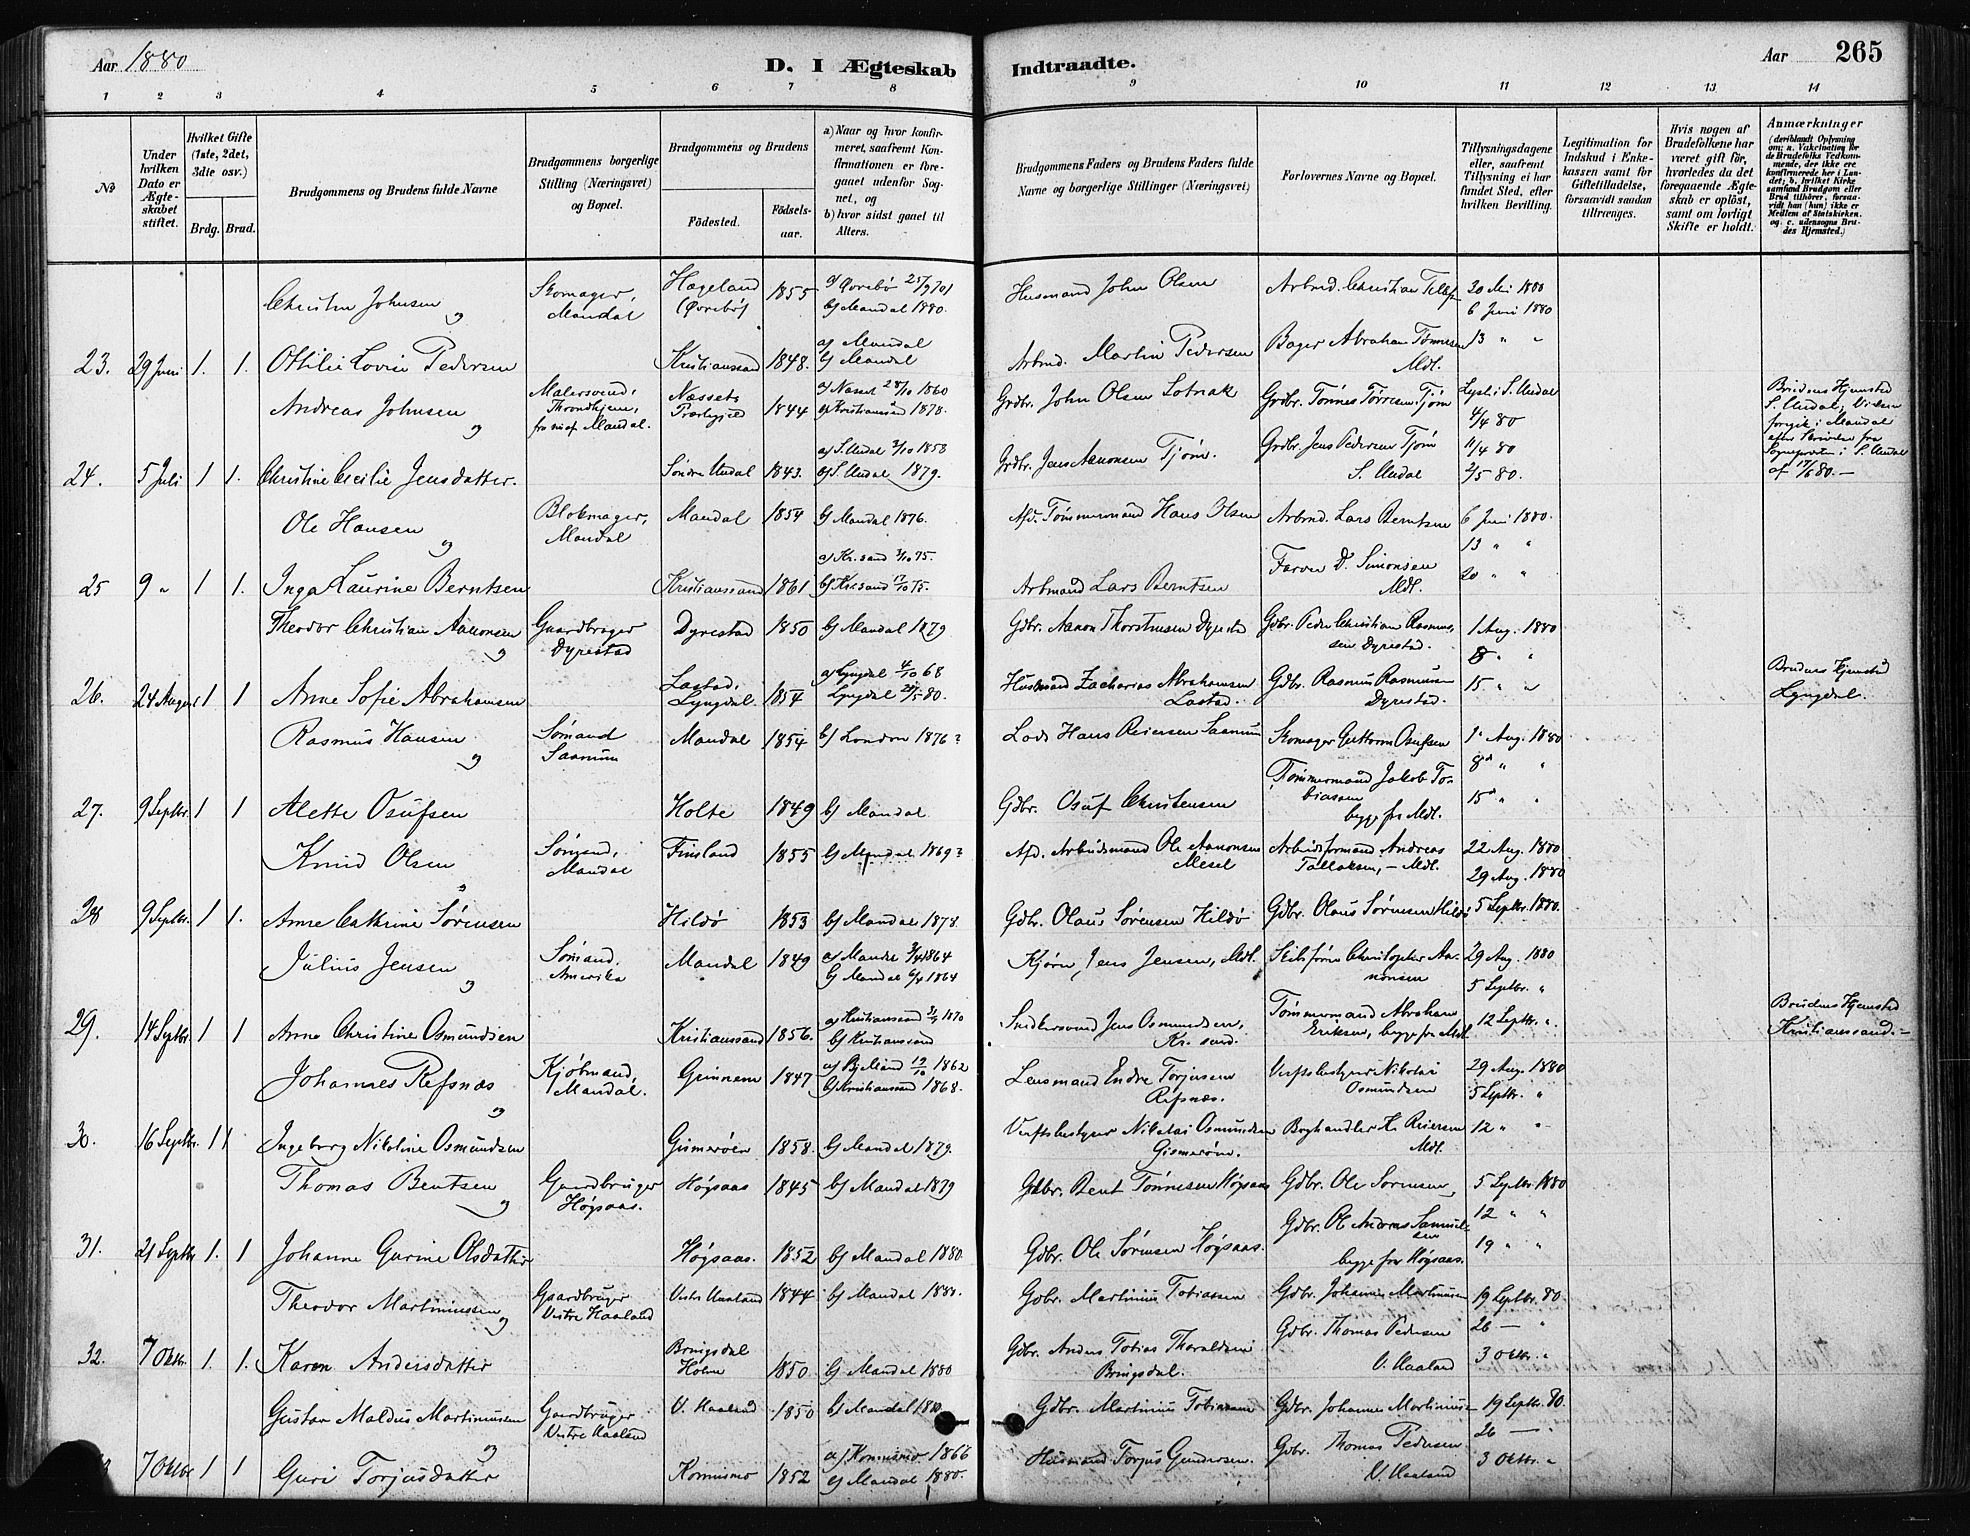 Aar 1880
D. I Ægteskab Indtraadte.
Aar
265
1 2 3 4 5 6 7 8 9 10 11 12 13 14
No
Under hvilken Dato er Ægteskabet stiftet.
Hvilket Gifte (1ste, 2det, 3die osv.)
Brdg. Brud.
Brudgommens og Brudens fulde Navne
Brudgommens borgerlige Stilling (Næringsvei) og Bopæl.
Brudgommens og Brudens
Fødested.
Fødselsaar.
a) Naar og hvor konfirmeret, saafremt Konfirmationen er foregaaet udenfor Sognet, og
b) hvor sidst gaaet til Alters.
Brudgommens Faders og Brudens Faders fulde Navne og borgerlige Stillinger (Næringsvei)
Forlovernes Navne og Bopæl.
Tillysningsdagene eller, saafremt Tillysning ei har fundet Sted, efter hvilken Bevilling.
Legitimation for Indskud i Enkekassen samt for Giftetilladelse, forsaavidt saadan tiltrænges.
Hvis nogen af Brudefolkene har været gift før, hvorledes da det foregaaende Ægteskab er opløst, samt om lovligt Skifte er holdt.
Anmærkninger
(deriblandt Oplysning om: a. Vakcination for de Brudefolks Vedkommende, der ikke ere konfirmerede her i Landet; b. hvilket Kirkesamfund Brudgom eller Brud tilhører, forsaavidt han (hun) ikke er Medlem af Statskirken. og c. udensogns Brudes Hjemsted.)
Christen Johnsen og Skomager, Mandal Hægeland (Øvrebø) 1855 b) Mandal 1880. Husmand John Olsen Arbmd. Christian 30 Mai 1880
6 Juni 1880
23. 29 Juni 1. 1. Ottilie Lovise Pedersen Kristianssand 1848. a) Mandal b) Mandal Arbmd. Martin Pedersen Bager Abraham Tønnesen Mdl. 13 " "
Andreas Johnsen og Malersvend, Throndhjem, Mandal. Næssets Præstegjeld 1844 a) Næsset 28/10 1860 b) Kristianssand 1878. Grdbr. John Olsen Grdbr. Tønnes Tørresen Tjøm Lyst i S. Undal 4/4 80
11/4 80
24. 5 Juli 1 1. Christine Cecilie Jensdatter. Søndre Undal 1843. b) S. Undal 1879. Grdbr. Jens Aanonsen Tjøm. Grdbr. Jens Pedersen Tjøm S. Undal 2/5 80. Brudens Hjemsted S. Undal; Vielsen foregik i Mandal efter Skrivelse fra Sognepresten i S. Undal af 17/6 80.—
Ole Hansen og Blokmager, Mandal Mandal 1854 b) Mandal 1876. Afd. Tømmermand Hans Olsen Arbmd. Lars Berntsen 6 Juni 1880.
13 " "
25 9 " 1 1. Inga Laurine Berntsen Kristianssand 1861 a) Kr. sand 3/10 75. b) Kr. sand 17/10 75. Arbmand Lars Berntsen Farver D. Simonsen Mdl. 20 " "
Theodor Christian Aanonsen og Gaardbruger Dyrestad Dyrestad 1850 b) Mandal 1879 Gdbr. Aanon Thorstensen Dyrestad Gdbr. Peder Christian Rasmussen Dyrestad. 1 Aug. 1880
8 " "
26. 24 August 1 1 Anne Sofie Abrahamsen Lastad, Lyngdal. 1854 a) Lyngdal 4/10 68 Lyngdal 80. Husmand Zacharias Abrahamsen Lastad. Gdbr. Rasmus Rasmussen Dyrestad. 15 " " Brudens Hjemsted Lyngdal.
Rasmus Hansen og Sømand Saanum Mandal 1854 b) London 1876? Lods Hans Reiersen Saanum Skomager Guttorm Osufsen 1 Aug. 1880
8 " "
27. 9 Septbr. 1 1 Alette Osufsen Holte 1849 b) Mandal. Gdbr. Osuf Christensen Tømmermand Jakob Tobiassen begge fra Mdl. 15 " "
Knud Olsen Sømand, Mandal Finsland 1855 b) Mandal 1869? Afd. Arbeidsmand Ole Aanonsen Mesel Arbeidsformand Andreas Tallaksen, – Mdl. 22 Aug. 1880
29 Aug. 1880
28 9 Septbr. 1 1. Anne Cathrine Sørensen Hildø 1853 b) Mandal 1878. Gdbr. Olaus Sørensen Hildø Gdbr. Olaus Sørensen Hildø 5 Septbr. 1880.
Julius Jensen og Sømand, Amerika Mandal 1849 a) Mandal 3/4 1864 b) Mandal 6/4 1864 Jens Jensen, Mdl. Skibsfører Christopher Aanonsen 29 Aug. 1880
5 Septbr. "
29. 14 Septbr. 1 1 Anne Christine Osmundsen Kristianssand 1856. b) Kristianssand Snedkersvend Jens Osmundsen, Kr. sand. Tømmermand Abraham Eriksen, begge fra Mdl. 12 Septbr. " Brudens Hjemsted Kristianssand.—
Johannes Refsnæs og Kjøbmand, Mandal. 1847 1862 b) Kristianssand 1868. Lensmand Endre Torjusen Refsnæs. Verftsbestyrer Nikolai Osmundsen 29 Aug. 1880
5 Septbr. "
30. 16 Septbr. 1 1 Ingeborg Nikoline Osmundsen Gismerøen 1858. b) Mandal 1879. Verftsbestyrer Nikolai Osmundsen Gismerøen. Boghandler H. Reiersen Mdl. 12 " "
Thomas Bentsen og Gaardbruger Høgsaas. Høgsaas 1845 b) Mandal 1879 Gdbr. Bent Tønnesen Høgsaas Gdbr. Ole Sørensen, 5 Septbr. 1880
12 " "
31. 21 Septbr 1. 1 Johanne Gurine Olsdatter Høgsaas. 1852 b) Mandal 1880. Gdbr. Ole Sørensen Høgsaas. Gdbr. Ole Andreas Samuelsen begge fra Høgsaas. 19 " "
Theodor Martiniussen og Gaardbruger Vestre Haaland Vestre Haaland 1844 b) Mandal 1880. Gdbr. Martinius Tobiassen Gdbr. Johannes Martiniussen 19 Septbr. 80
26 — "
32. 7 Oktbr. 1. 1. Karen Andersdatter Bringsdal Holme 1850 b) Mandal 1880 Gdbr. Anders Tobias Thoraldsen Bringsdal. Gdbr. Thomas Pedersen V. Haaland 3 Oktbr. "
Gustav Maldus Martiniussen og Gaardbruger Vestre Haaland V. Haaland 1850 b) Mandal 1880. Gdbr. Martinius Tobiassen Gdbr. Johannes Martiniussen 19 Septbr. 80.
26 — "
7 Oktbr 1 1 Guri Torjusdatter Konnismo 1852 a) Konnismo 1866 b) Mandal 1880. Husmand Torjus Gundersen. Gdbr. Thomas Pedersen V. Haaland 3 Oktbr. "